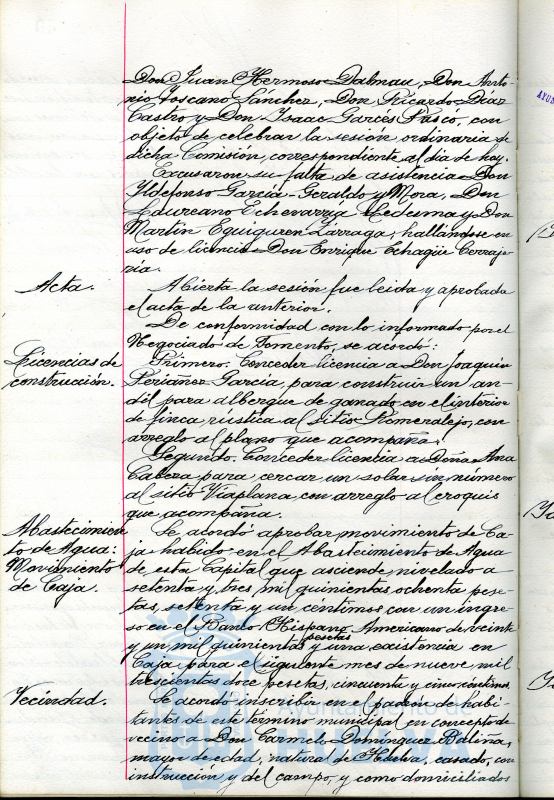 Don Juan Hermoso Dalmau, Don Anto-
nio Toscano Sánchez, Don Ricardo Díaz
Castro y Don Isaac Garcés Pasco, con
objeto de celebrar la sesión ordinaria de
dicha Comisión, correspondiente al día de hoy.
Excusaron su falta de asistencia Don
Yldefonso García-Geraldo y Mora, Don
Laureano Echevarría Ledesma y Don
Martín Eguiguren Lizaga; hallándose en
uso de licencia Don Enrique Echagüe Cerraje-
ria.
Acta.
Abierta la sesión fue leida y aprobada
el acta de la anterior.
De conformidad con lo informado por el
Negociado de Fomento, se acordó:
Licencias de
construcción.
Primero. Conceder licencia a Don Joaquín
Periañez García, para construir un an-
dél para albergue de ganado en el interior
de finca rústica al sitio Romeralejo, con
arreglo al plano que acompaña.
Segundo. Conceder licencia a Doña Ana
Cabeza para cercar un solar sin número
al sitio Viaplana con arreglo al croquis
que acompaña.
Abastecimien-
to de Agua:
Movimiento
de Caja.
Se acordó aprobar movimiento de Ca-
ja habido en el Abastecimiento de Agua
de esta Capital que asciende nivelado a
setenta y tres mil quinientas ochenta pese-
tas, setenta y un centimos con un ingre-
so en el Banco Hispano Americano de veinte
y un mil quinientas pesetas y una existencia en
Caja para el siguiente mes de nueve mil
trescientas doce pesetas, cincuenta y cinco centimos.
Vecindad.
Se acordó inscribir en el padrón de habi-
tantes de este término municipal en concepto de
vecino a Don Carmelo Domínguez Baliñas,
mayor de edad, natural de Huelva, casado, con
instrucción y del campo, y como domiciliados
Ayuntamiento de
HUELVA